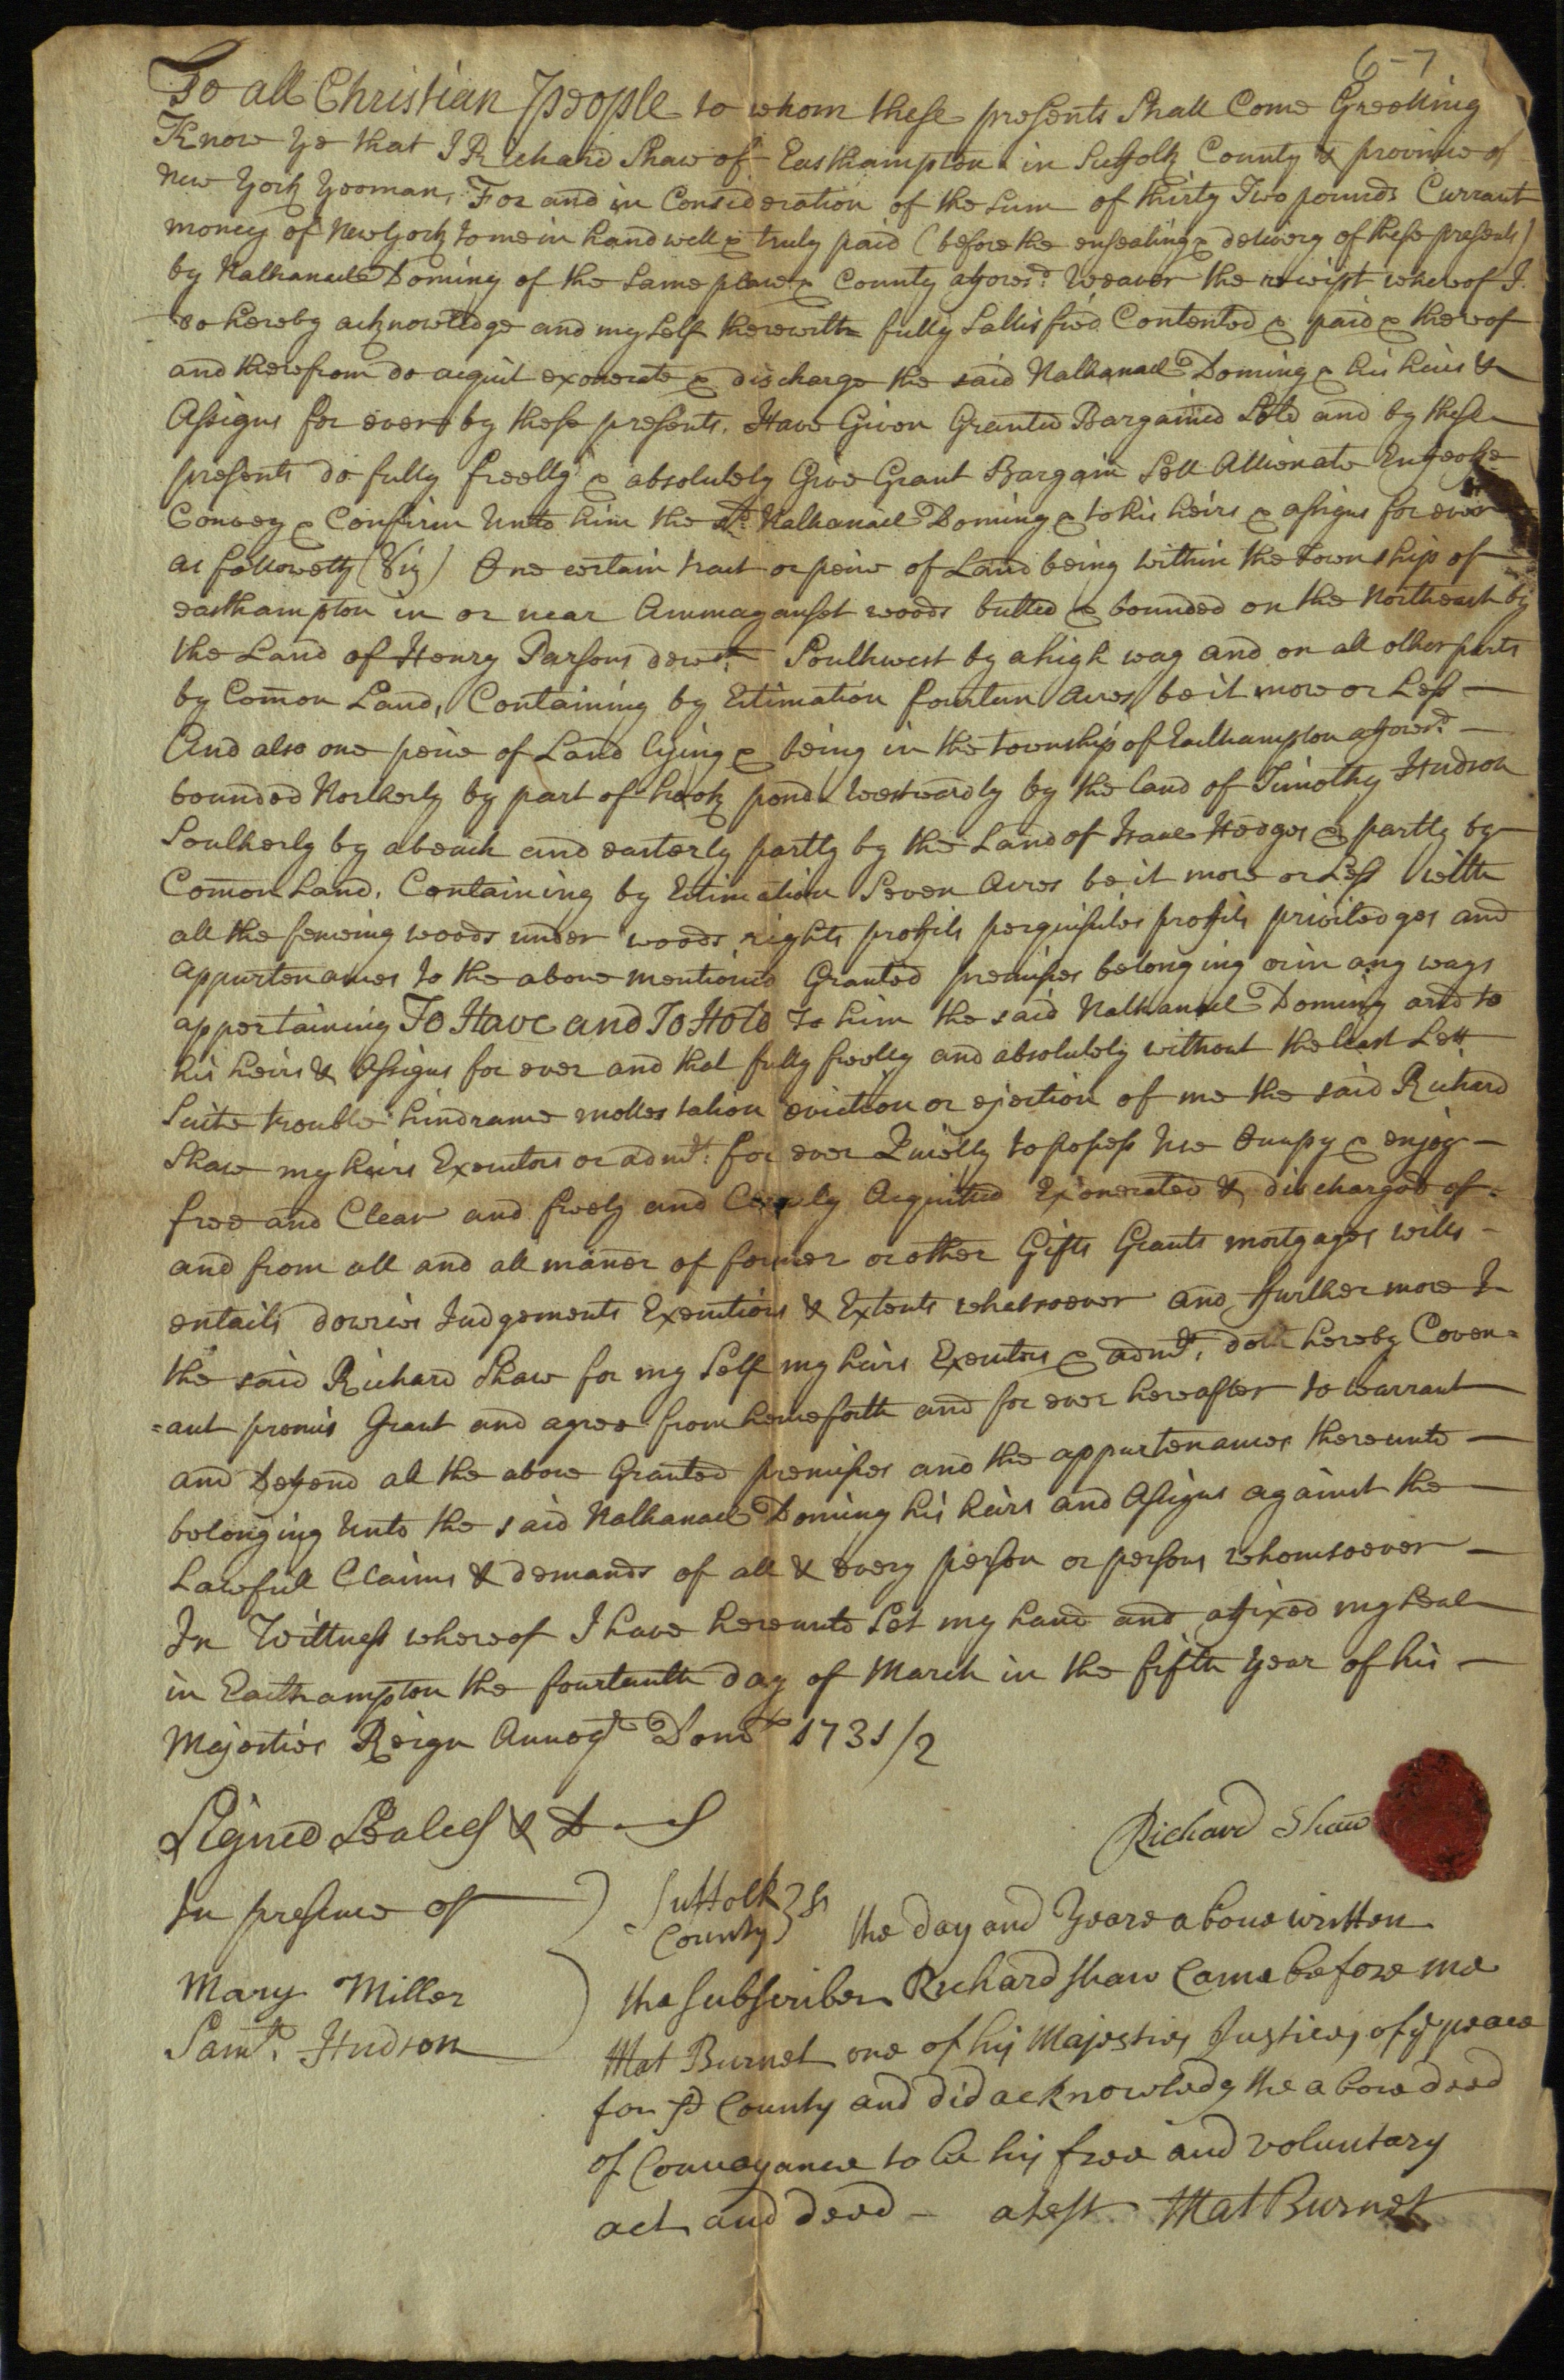 6-7
To all Christian People to whom these presents Shall Come Greeting
Know ye that I Richard Shaw of Easthampton in Suffolk County & province of
New York Yeoman, For and in Consideration of the Sum of thirty Two pounds Currant
money of New York to me in hand well & truly paid (before the ensealing & delivery of these presents)
by Nathanael Doming of the Same place & County afores.d Weaver the receipt whereof I
do hereby acknowledge and my Self therewith fully Sattisfied Contented & paid & thereof
and therefrom do acquit exonerate & discharge the said Nathanael Doming & his heirs &
Assigns for ever by these presents. Have Given Granted Bargained Sold and by these
presents do fully freelly & absolutely Give Grant Bargain Sell Allienate Enfeoffe
Convey & Confirm Unto him the sd. Nathanael Doming & to his heirs & assigns for ever
as followeth (Viz) One certain tract or peice of Land being within the township of
easthampton in or near Ammaganset woods butted & bounded on the Northeast by
the Land of Henry Parsons deces.d Southwest by a high way and on all other parts
by Com̄on Land, Containing by Estimation fourteen Acres be it more or Less —
And also one peice of Land lying & being in the township of Easthampton afores.d —
bounded Northerly by part of hook pond westwardly by the land of Timothy Hudson
Southerly by a beach and easterly partly by the Land of Isaac Hedges & partly by
Com̄on Land. Containing by Estimation Seven Acres be it more or Less with
all the fencing woods under woods rights proffits perquisites proffits priviledges and
appurtenances to the above mentioned Granted premises belonging or in any ways
appertaining To Have and To Hold to him the said Nathanael Doming and to
his heirs & Assigns for ever and that fully freelly and absolutely without the least Lett
Suite trouble hindrance mollestation eviction or ejection of me the said Richard
Shaw my heirs Executors or admrs: for ever Quietly to possess Use Occupy & enjoy —
free and Clear and freely and Clearly Acquitted Exonerated & discharged of =
and from all and all man̄er of former or other Gifts Grants mortgages wills —
entails dowries Judgements Executions & Extents whatsoever and furthermore I
the said Richard Shaw for my Self my heirs Executors & admrs. doth hereby Coven=
=ant promis Grant and agree from henceforth and for ever hereafter to warrant
and Defend all the above Granted premises and the appurtenances thereunto —
belonging Unto the said Nathanael Doming his heirs and Assigns against the —
Lawfull Claims & demands of all & every person or persons whomsoever —
In Wittness whereof I have hereunto Set my hand and affixed my Seal
in Easthampton the fourteenth day of March in the fifth year of his —
Majesties Reign Annoq.e Dom 1731/2
Signed Sealed & D—d
Richard Shaw
In presence of
Mary Miller
Sam.ll Hudson
Suffolk County } ss the day and Yeare above written
the subscriber Richard Shaw Came before me
Mat Burnet one of his Majesties Justices of ye peace
for sd County and did acknowledg the above deed
of Conveyance to be his free and voluntary
act and deed — atest Mat Burnet